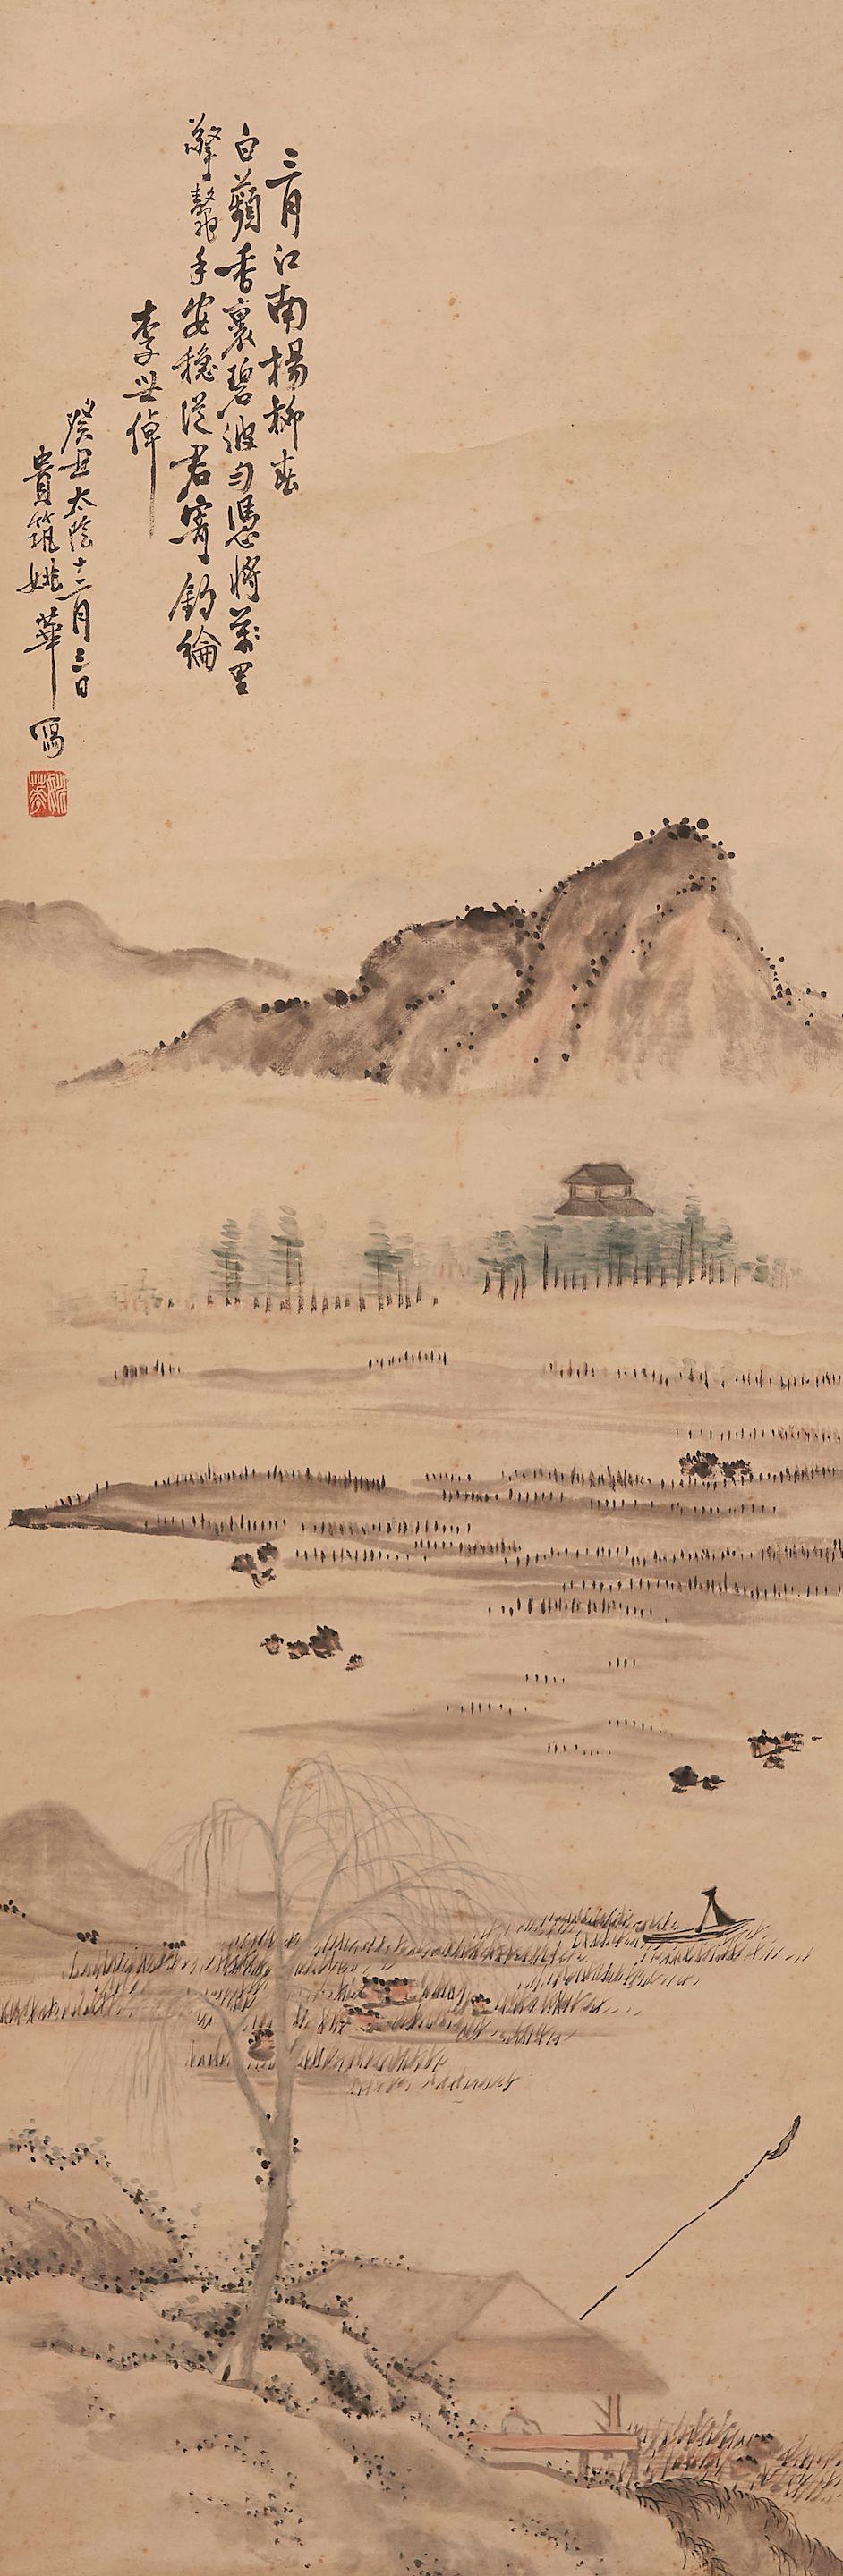 三月江南楊柳春
白蘋香裏碧波勻憑將萬里
擎鼇手安穩從君寄釣綸
李世倬
癸丑太陰十二月三日
貴筑姚華寫
姚華